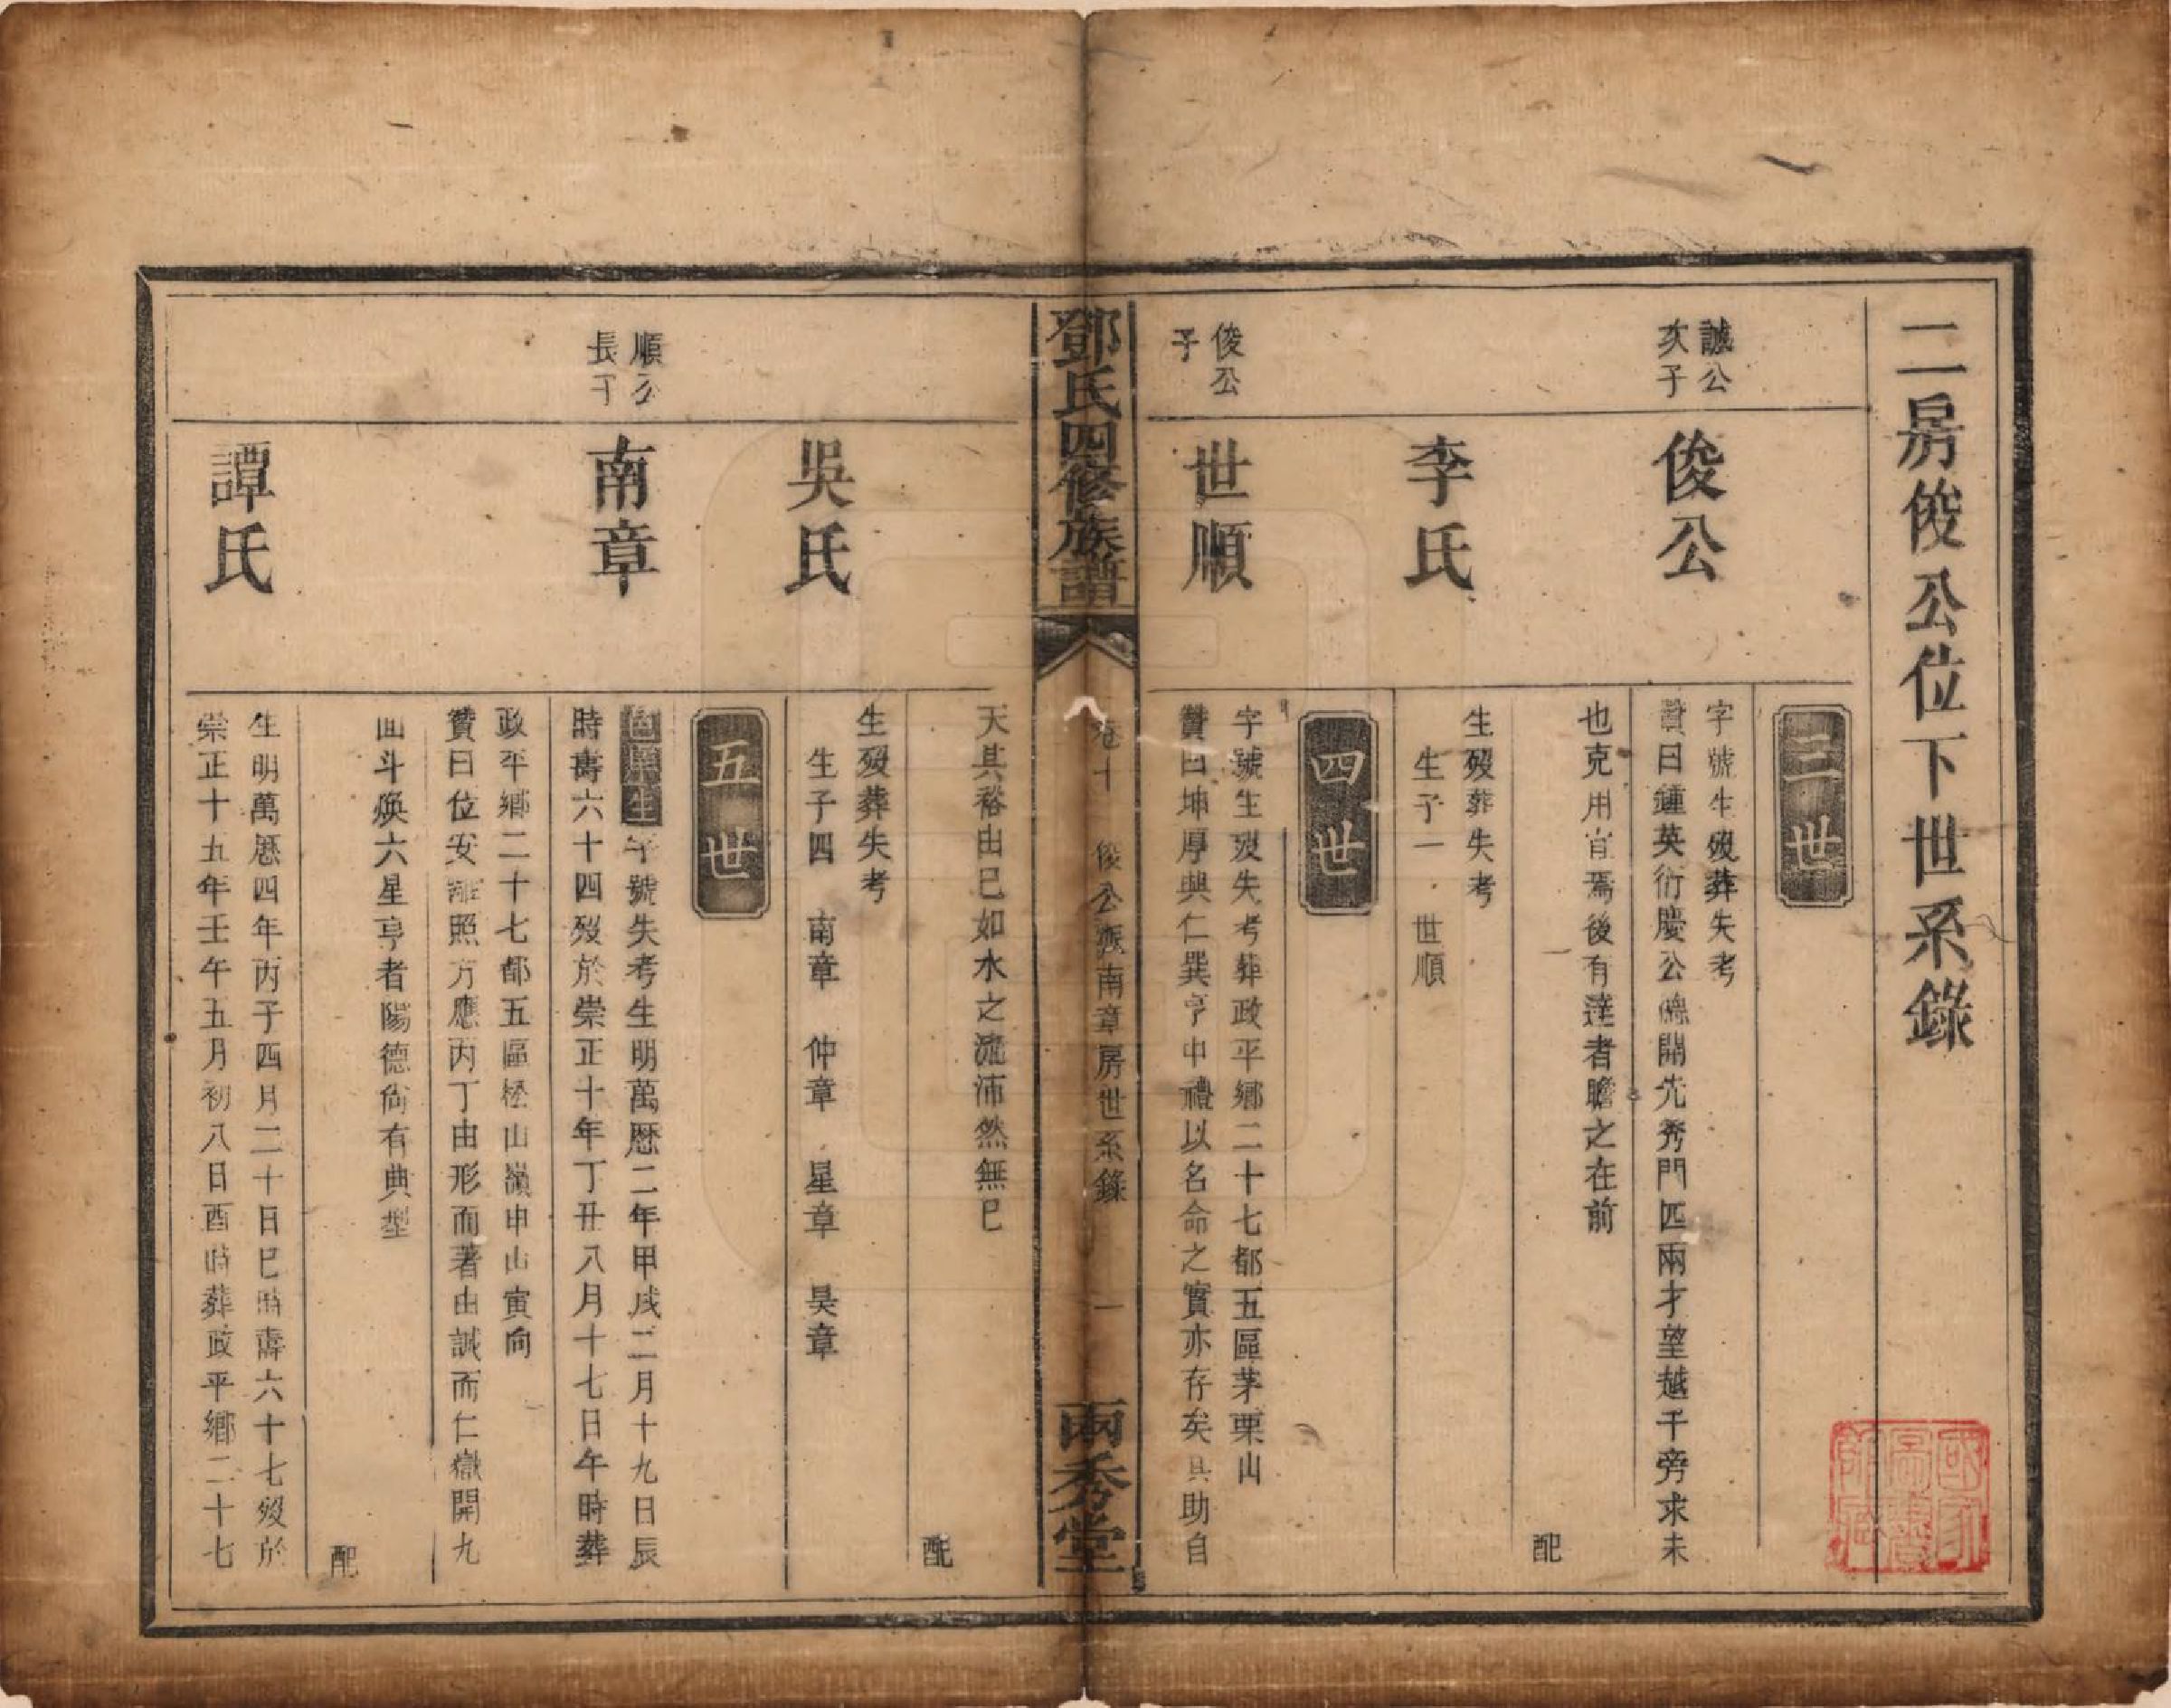 二房俊公位下世系錄
誠公
次子
俊公
三世
字號生歿葬失考
贊曰鍾英衍慶公傳開先秀門匹兩才望越千旁求未
也克用肯焉後有達者瞻之在前
配
李氏
生歿葬失考
生子一 世順
四世
俊公
子
世順
字號生歿失考葬政平鄉二十七都五區茅栗山
贊曰坤厚與仁巽亨中禮以名命之實亦存矣具助自
鄧氏四修族譜
卷十 俊公派南章房世系錄 一
兩秀堂
天其裕由已如水之流沛然無已
配
吳氏
生歿葬失考
生子四 南章 仲章 星章 昊章
五世
順公
長子
南章
邑庠生字號失考生明萬歷二年甲戌二月十九日辰
時壽六十四歿於崇正十年丁丑八月十七日午時葬
政平鄉二十七都五區松山嶺申山寅向
贊曰位安離照方應丙丁由形而著由誠而仁嶽開九
面斗煥六星亨者陽德尚有典型
配
譚氏
生明萬歷四年丙子四月二十日巳時壽六十七歿於
崇正十五年壬午五月初八日酉時葬政平鄉二十七